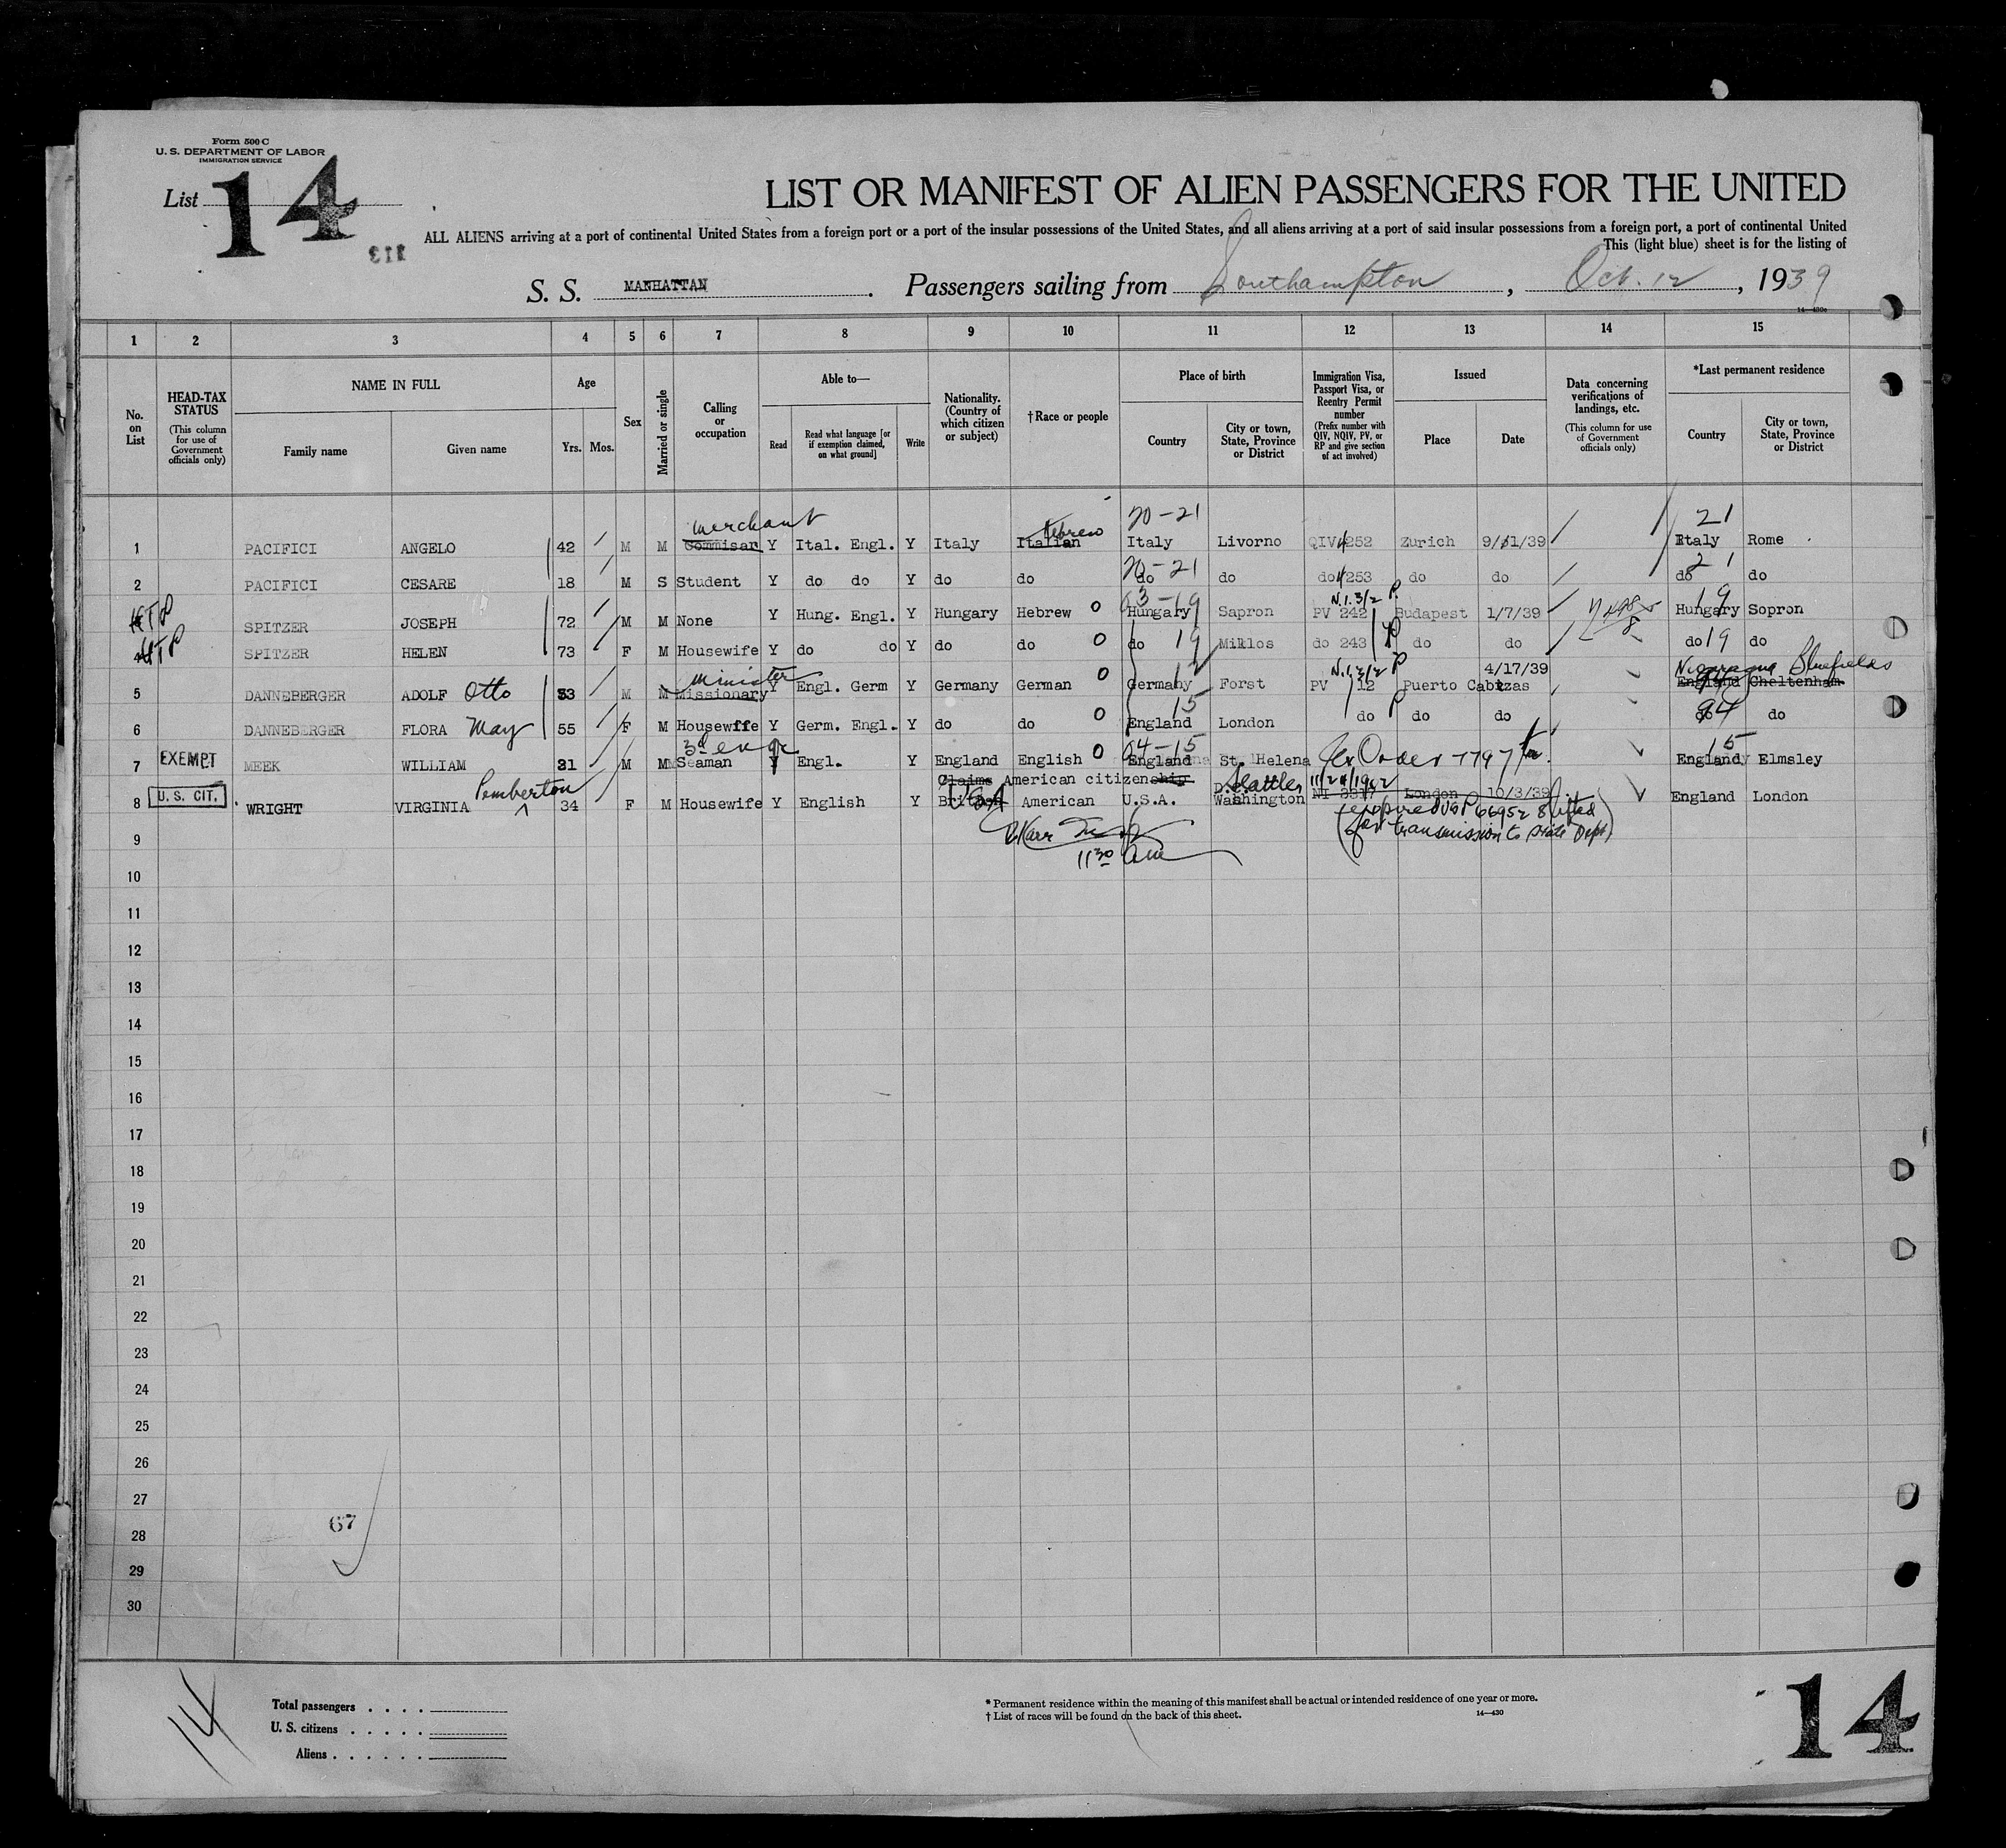 Form 500 C
U. S. DEPARTMENT OF LABOR
IMMIGRATION SERVICE
List 14
LIST OR MANIFEST OF ALIEN PASSENGERS FOR THE UNITED
ALL ALIENS arriving at a port of continental United States from a foreign port or a port of the insular possessions of the United States, and all aliens arriving at a port of said insular possessions from a foreign port, a port of continental United
This (light blue) sheet is for the listing of
S. S. MANHATTAN. Passengers sailing from Southampton, Oct. 12, 1939
1 2 3 4 5 6 7 8 9 10 11 12 13 14 15
No. on List
HEAD-TAX STATUS (This column for use of Government officials only)
NAME IN FULL Family name Given name
Age Yrs. Mos.
Sex
Married or single
Calling or occupation
Able to— Read Read what language [or if exemption claimed, on what ground] Write
Nationality. (Country of which citizen or subject)
†Race or people
Place of birth Country City or town, State, Province or District
Immigration Visa, Passport Visa, or Reentry Permit number (Prefix number with QIV, NQIV, PV, or RP and give section of act involved)
Issued Place Date
Data concerning verifications of landings, etc. (This column for use of Government officials only)
*Last permanent residence Country City or town, State, Province or District
merchant Hebrew 20-21 21
1 PACIFICI ANGELO 42 M M Commisar Y Ital. Engl. Y Italy Italian Italy Livorno QIV 4252 Zurich 9/11/39 Italy Rome
20-21 21
2 PACIFICI CESARE 18 M S Student Y do do Y do do do do do 4253 do do do do
3-19 N.I. 3/2 P 19
HTP SPITZER JOSEPH 72 M M None Y Hung. Engl. Y Hungary Hebrew 0 Hungary Sapron PV 242 Budapest 1/7/39 Hungary Sopron
HTP SPITZER HELEN 73 F M Housewife Y do do Y do do 0 do 19 Miklos do 243 do do do 19 do
minister N.I. 3/2 P 4/17/39 Nicaragua Bluefields
5 DANNEBERGER ADOLF Otto 53 M M Missionary Y Engl. Germ Y Germany German 0 Germany Forst PV 12 Puerto Cabezas England Cheltenham
15 94
6 DANNEBERGER FLORA May 55 F M Housewife Y Germ. Engl. Y do do 0 England London do do do do do
3d engr 04-15 15
EXEMPT 7 MEEK WILLIAM 31 M M Seaman Y Engl. Y England English 0 England St. Helena Ex Order 7797 England Elmsley
Claims American citizenship Seattle 11/24/1902
U.S. CIT. 8 WRIGHT VIRGINIA Pemberton 34 F M Housewife Y English Y British USA American U.S.A. Washington D.C. NI London 10/3/39 England London
(expired USP 669528 lifted
for transmission to State Dept)
11 30 am
9
10
11
12
13
14
15
16
17
18
19
20
21
22
23
24
25
26
27
67
28
29
30
14
Total passengers . . . .
U. S. citizens . . . . .
Aliens . . . . . .
* Permanent residence within the meaning of this manifest shall be actual or intended residence of one year or more.
† List of races will be found on the back of this sheet.
14—430
14